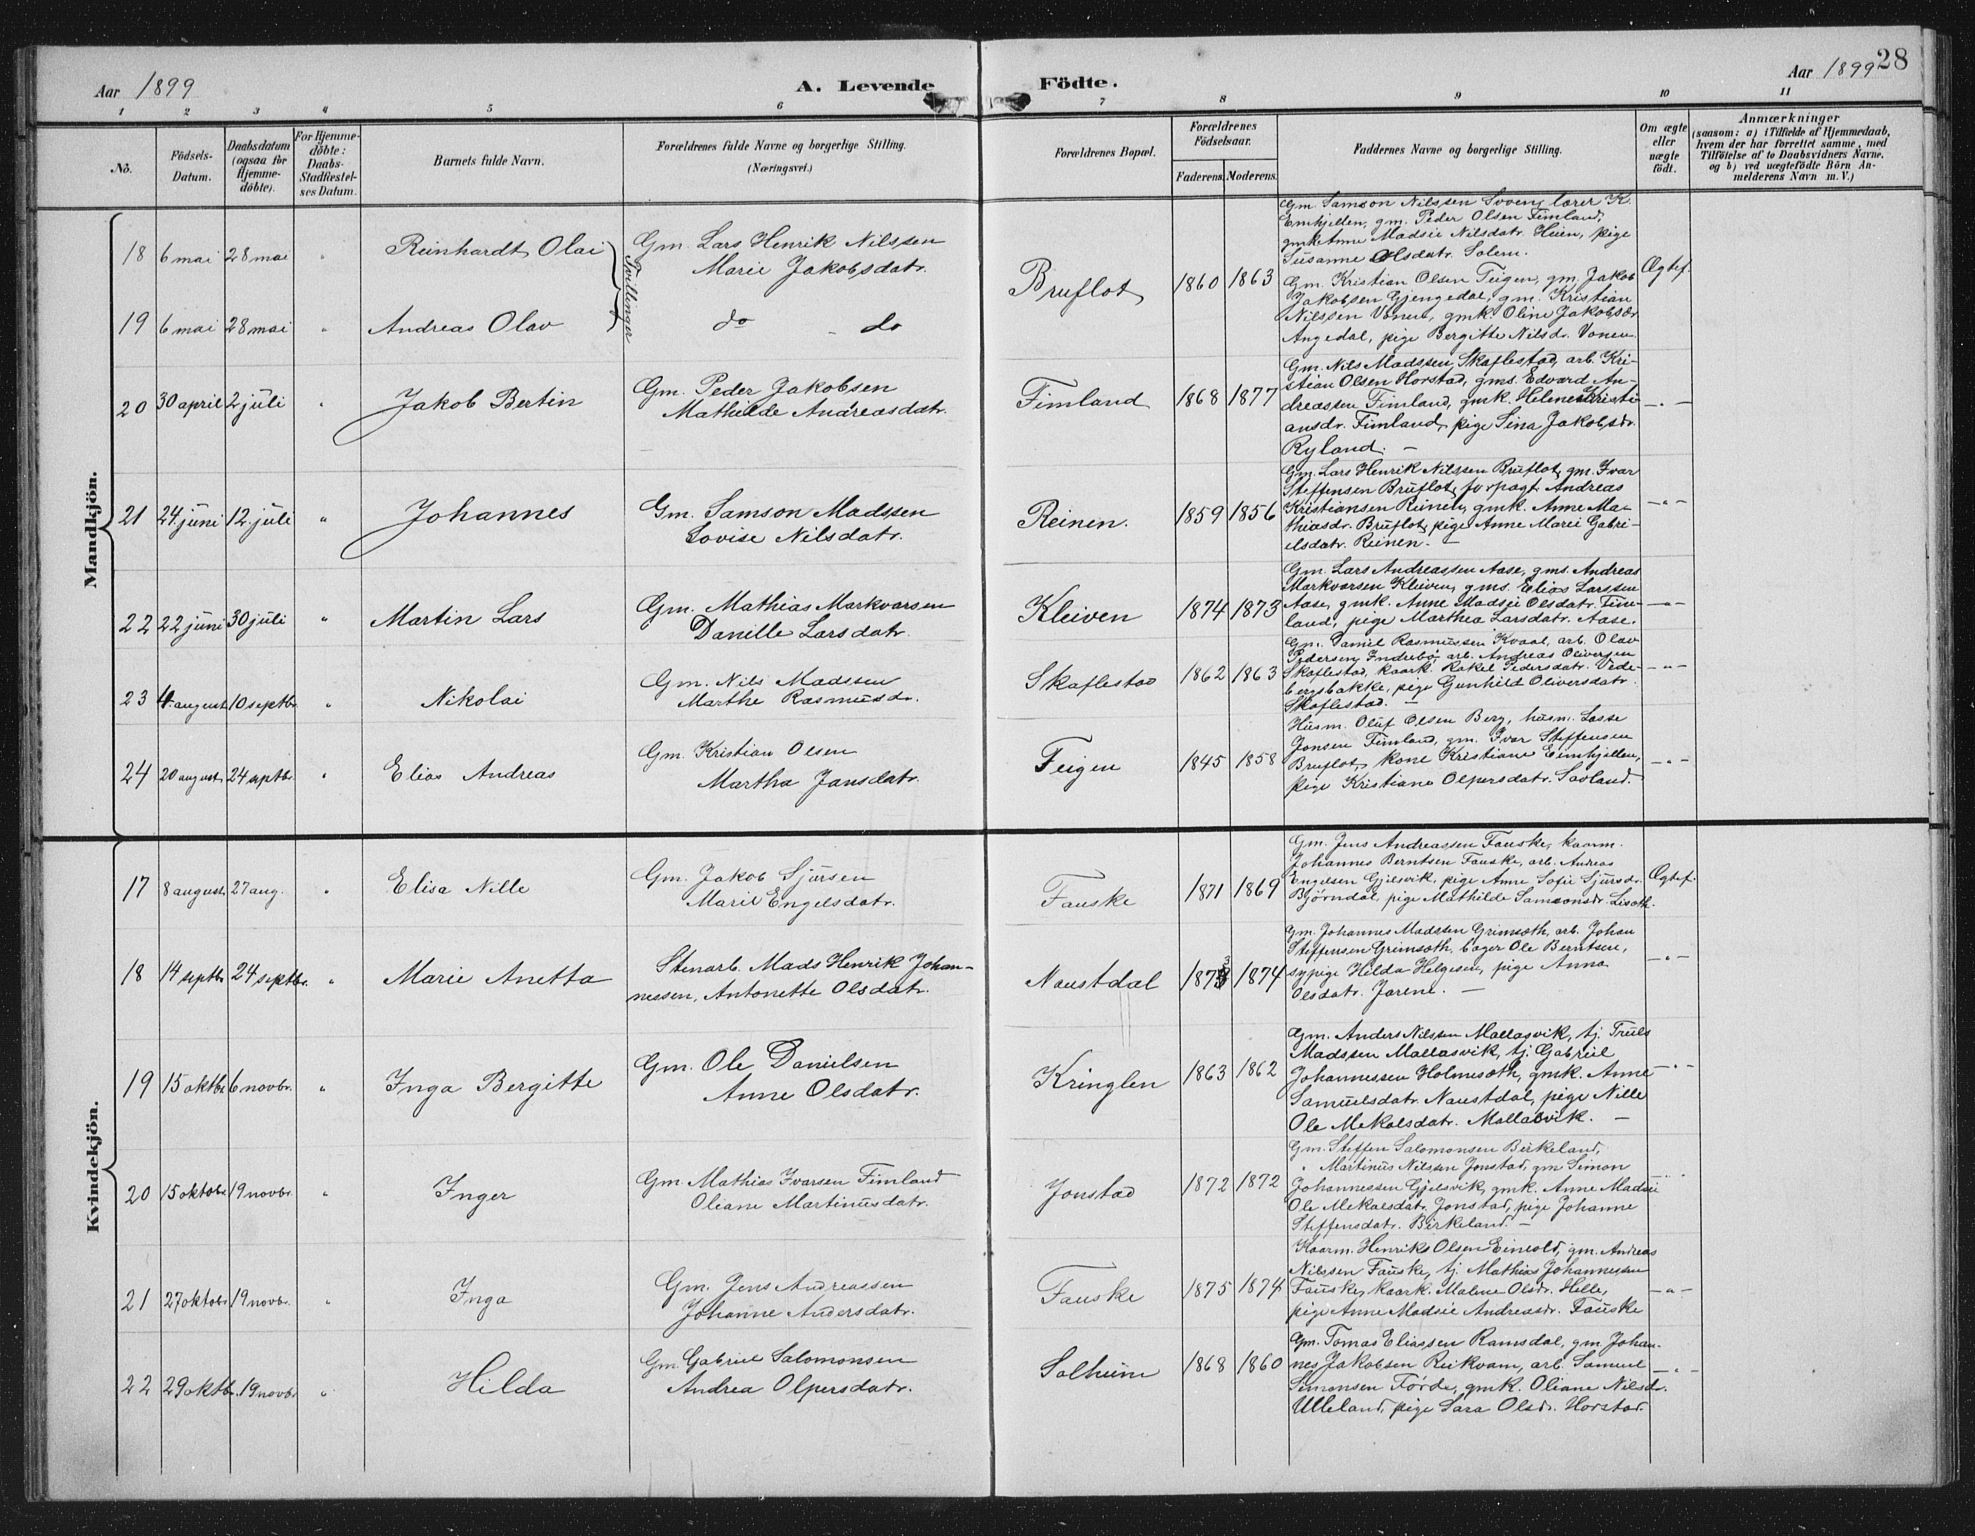 Aar 1899 A. Levende Födte. Aar 1899 28
1 2 3 4 5 6 7 8 9 10 11
No. Födsels-Datum. Daabsdatum (ogsaa for Hjemmedöbte). For Hjemmedöbte: Daabs-Stadfestelses Datum. Barnets fulde Navn. Forældrenes fulde Navne og borgerlige Stilling. (Næringsvei.) Forældrenes Bopæl. Forældrenes Födselsaar. Faderens. Moderens. Faddernes Navne og borgerlige Stilling. Om ægte eller uægte födt. Anmærkninger (saasom: a) i Tilfælde af Hjemmedaab, hvem der har forrettet samme, med Tilföielse af to Daabsvidners Navne, og b) ved uægtefödte Börn Anmelderens Navn m. V.)
Mandkjön.
18 6 mai 28 mai " Reinhardt Olai Tvillinger Gm. Lars Henrik Nilssen
Marie Jakobsdatr. Bruflot 1860 1863 Ægtef.
Gm. Samson Nilssen Svoen, lærer K.
Emhjellen, gm. Peder Olsen Fimland,
gmk. Anne Madsie Nilsdatr. Heien, pige
Susanne Olsdatr. Solem.
19 6 mai 28 mai " Andreas Olav do - do
Gm. Kristian Olsen Teigen, gm. Jakob
Jakobsen Gjengedal, gm. Kristian
Nilssen Vonen, gmk. Oline Jakobsdr.
Angedal, pige Bergitte Nilsdr. Vonen
20 30 april 2 juli " Jakob Bertin Gm. Peder Jakobsen
Mathilde Andreasdatr. Fimland 1868 1877 — " —
Gm. Nils Madssen Skaflestad, arb. Kri-
stian Olsen Horstad, gms. Edvard An-
dreassen Fimland, gmk. Helene Kristi-
ansdr. Fimland, pige Sina Jakobsdr.
Ryland. —
21 24 juni 12. juli " Johannes Gm. Samson Madssen
Lovise Nilsdatr. Reinen. 1859 1856 — " —
Gm. Lars Henrik Nilssen Bruflot, gm. Ivar
Steffensen Bruflot, forpagt. Andreas
Kristiansen Reinen, gmk. Anne Ma-
thiasdr. Bruflot, pige Anne Marie Gabri-
elsdatr. Reinen. —
22 22 juni 30 juli " Martin Lars Gm. Mathias Markvarsen
Danielle Larsdatr. Kleiven 1874 1873 — " —
Gm. Lars Andreassen Aase, gms. Andreas
Markvarsen Kleiven, gms. Elias Larssen
Aase, gmk. Anne Madsie Olsdatr. Fim-
land, pige Marthea Larsdatr. Aase.
23 4. august 10 septbr. " Nikolai Gm. Nils Madssen
Marthe Rasmusdr. Skaflestad 1862 1863 — " —
Gm. Daniel Rasmussen Kvaal, arb. Olav
Pedersen Indrebö, arb. Andreas Oliversen
Skaflestad, kaark. Rakel Pedersdatr. Vede-
bergsbakke, pige Gunhild Oliversdatr.
Skaflestad. —
24 20 august 24 septbr. " Elias Andreas Gm. Kristian Olsen
Martha Jansdatr. Teigen 1845 1858 — " —
Husm. Oluf Olsen Berg, husm. Lasse
Jonsen Fimland, gm. Ivar Steffensen
Bruflot, kone Kristiane Eimhjellen,
pige Kristiane Olpersdatr. Savland.
Kvindekjön.
17 8 august 27 aug. " Elisa Nille Gm. Jakob Sjursen
Marie Engelsdatr. Fauske 1871 1869 Ægtef.
Gm. Jens Andreassen Fauske, kaarm.
Johannes Berntsen Fauske, arb. Andreas
Engelsen Gjelsvik, pige Anne Sofie Sjursdr.
Bjørndal, pige Mathilde Samsonsdr. Liseth.
18 14 septbr. 24 septbr. " Marie Anetta Stenarb. Mads Henrik Johan-
nessen, Antonette Olsdatr. Naustdal 1873 1874 — " —
Gm. Johannes Madssen Grimseth, arb. Johan
Steffensen Grimseth, bager Ole Berntsen,
sypige Hilda Helgesen, pige Anna
Olsdatr. Jarene. —
19 15 oktbr. 6 novbr. " Inga Bergitte Gm. Ole Danielsen
Anne Olsdatr. Kringlen 1863 1862 — " —
Gm. Anders Nilssen Mallasvik, tj. Truls
Madssen Mallasvik, tj. Gabriel
Johannessen Holmesæth, gmk. Anne
Samuelsdatr. Naustdal, pige Nille
Ole Mekalsdatr. Mallasvik. —
20 15 oktobr. 19 novbr. " Inger Gm. Mathias Ivarsen Fimland
Oliane Martinusdatr. Jonstad 1872 1872 — " —
Gm. Steffen Salomonsen Birkeland,
" Martinus Nilssen Jonstad, gm. Simon
Johannessen Gjelsvik, gmk. Anne Madsie
Ole Mekalsdatr. Jonstad, pige Johanne
Steffensdatr. Birkeland. —
21 27 oktobr. 19 novbr. " Inga Gm. Jens Andreassen
Johanne Andersdatr. Fauske 1875 1874 — " —
Kaarm. Henrik Olsen Einevold, gm. Andreas
Nilssen Fauske, tj. Mathias Johannessen
Fauske, kaark. Malene Olsdr. Helle,
pige Anne Madsie Andreasdr. Fauske
22 29 oktbr. 19 novbr. " Hilda Gm. Gabriel Salomonsen
Andrea Olpersdatr. Solheim 1868 1860 — " —
Gm. Tomas Eliassen Ramsdal, gm. Johan-
nes Jakobsen Reikvam, arb. Samuel
Simonsen Förde, gmk. Oliane Nilsdr.
Ulleland, pige Sara Olsdr. Horstad.